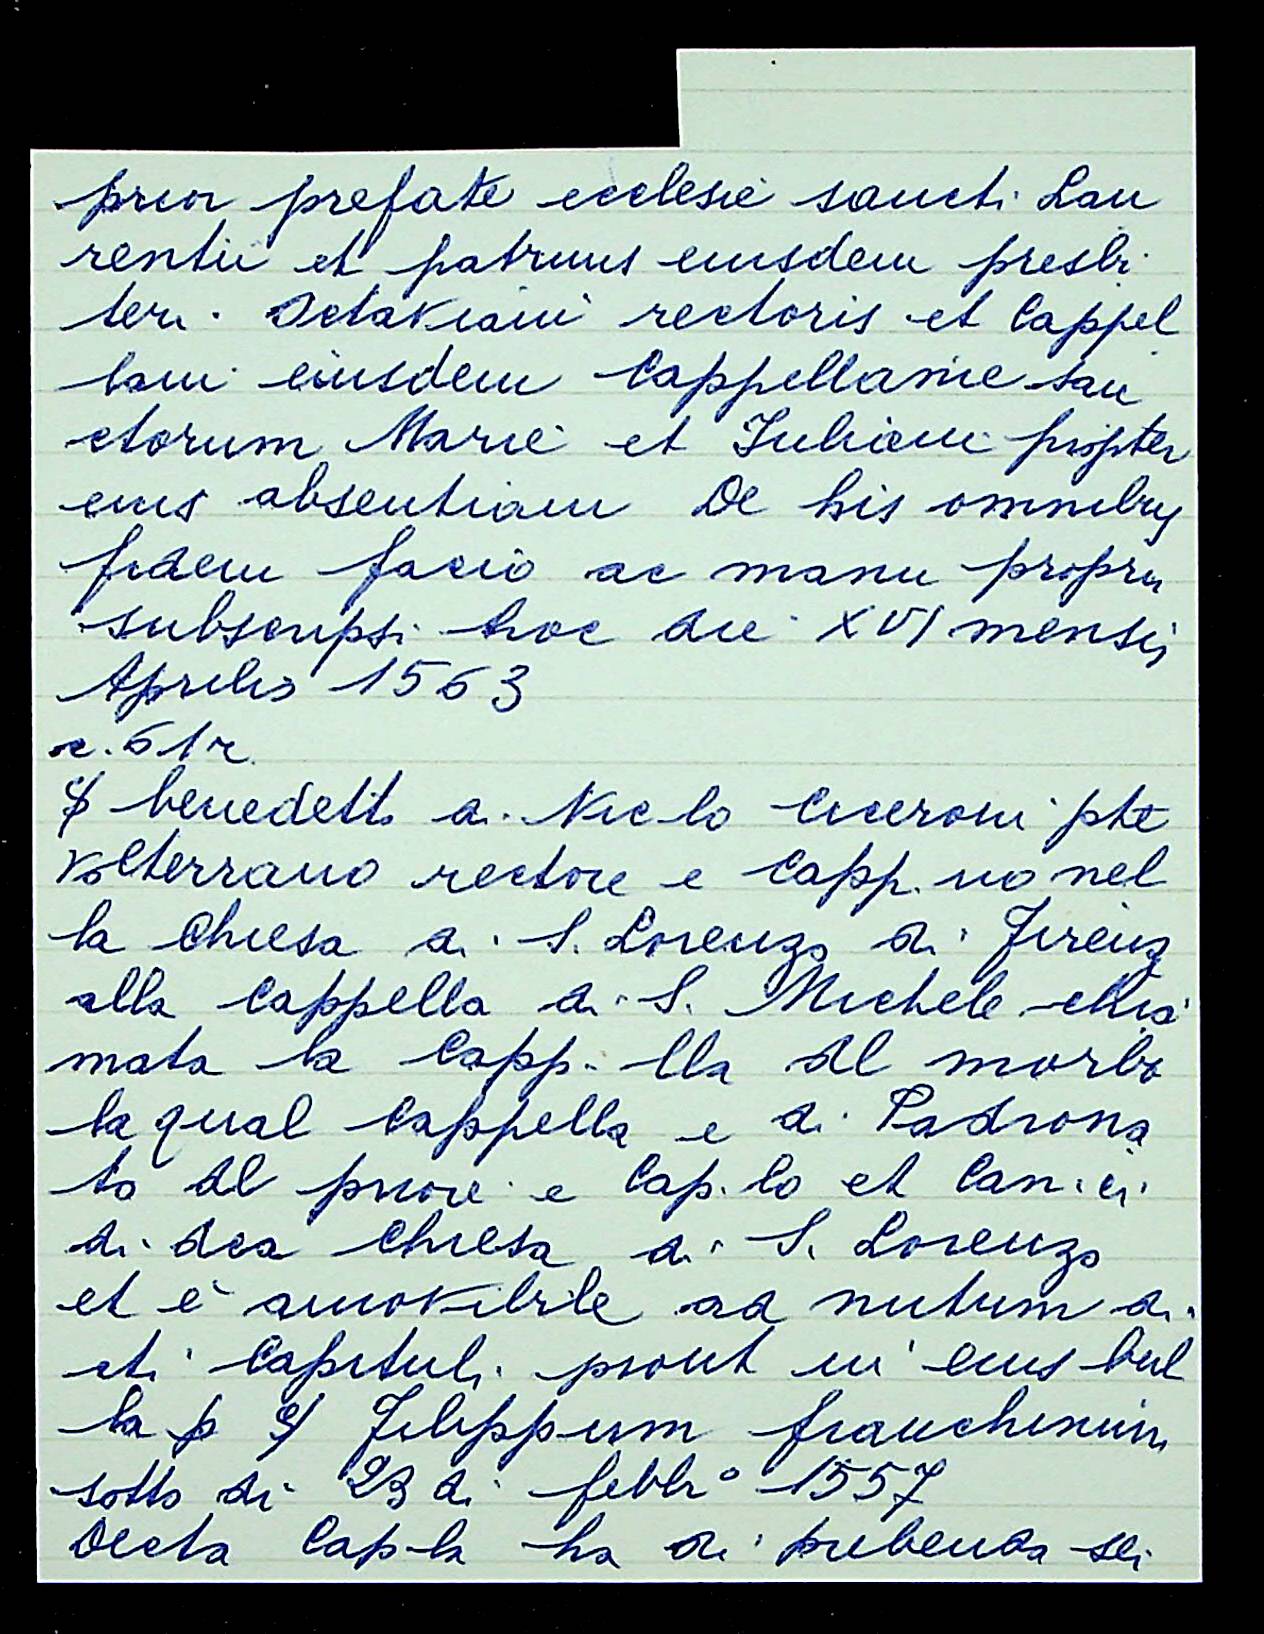 prior prefate ecclesie sancti Lau
rentii et patruus eiusdem presbi
teri Octaviani rectoris et Cappel
lani eiusdem Cappellanie san
ctorum Marie et Iuliani propter
eius absentiam De his omnibus
fidem facio ac manu propria
subscripsi hoc die XVI mensis
Aprilis 1563
c. 61r.
Ser benedetto di Nic-lo Ciceroni pte
Volterrano rectore e Capp.no nel
la Chiesa di S. Lorenzo di Firenz
alla Cappella di S. Michele chia
mata la Capp.lla del morbo
la qual Cappella e di Padrona
to del priore e Cap.lo et Can.ci
di dca Chiesa di S. Lorenzo
et è amovibile ad nutum di
cti Capituli prout in eius bul
la p Ser Filippum franchinum
sotto di 23 di febbr° 1557
Decta Cap-la ha di prebenda sei